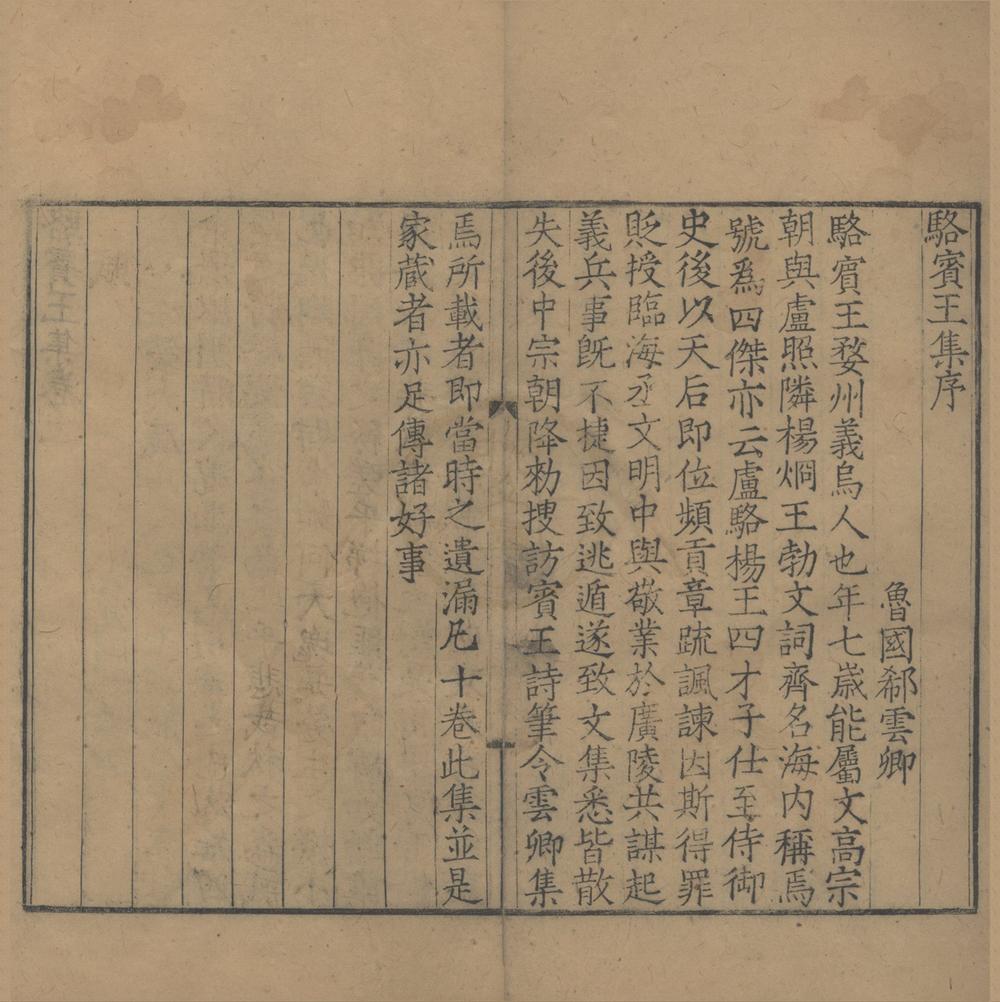 駱賓王集序
魯國郗雲卿
駱賓王婺州義烏人也年七歲能屬文高宗
朝與盧照隣楊烱王勃文詞齊名海内稱焉
號爲四傑亦云盧駱楊王四才子仕至侍御
史後以天后即位頻貢章疏諷諫因斯得罪
貶授臨海丞文明中與敬業於廣陵共謀起
義兵事旣不捷因致逃遁遂致文集悉皆散
失後中宗朝降勑搜訪賓王詩筆令雲卿集
焉所載者即當時之遺漏凡十卷此集並是
家藏者亦足傳諸好事